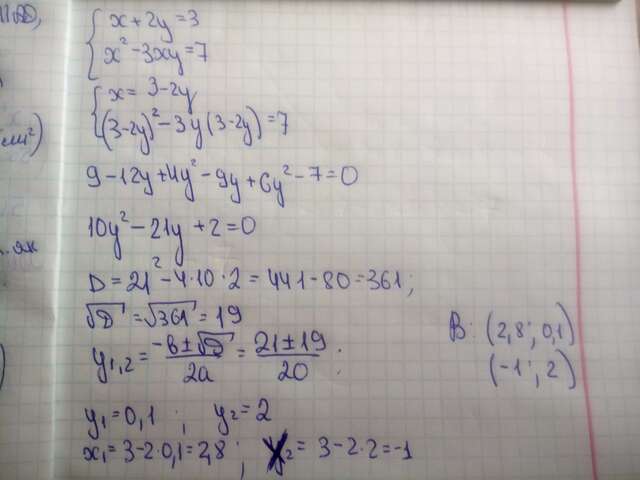 x + 2y = 3
x² - 3xy = 7
x = 3 - 2y
(3-2y)² - 3y(3-2y) = 7
9 - 12y + 4y² - 9y + 6y² - 7 = 0
10y² - 21y + 2 = 0
D = 21² - 4·10·2 = 441 - 80 = 361;
√D = √361 = 19
y₁,₂ = (-b ± √D)/2a = (21 ± 19)/20;
y₁ = 0,1 ; y₂ = 2
x₁ = 3 - 2·0,1 = 2,8 ; x₂ = 3 - 2·2 = -1
В: (2,8 ; 0,1)
(-1 ; 2)